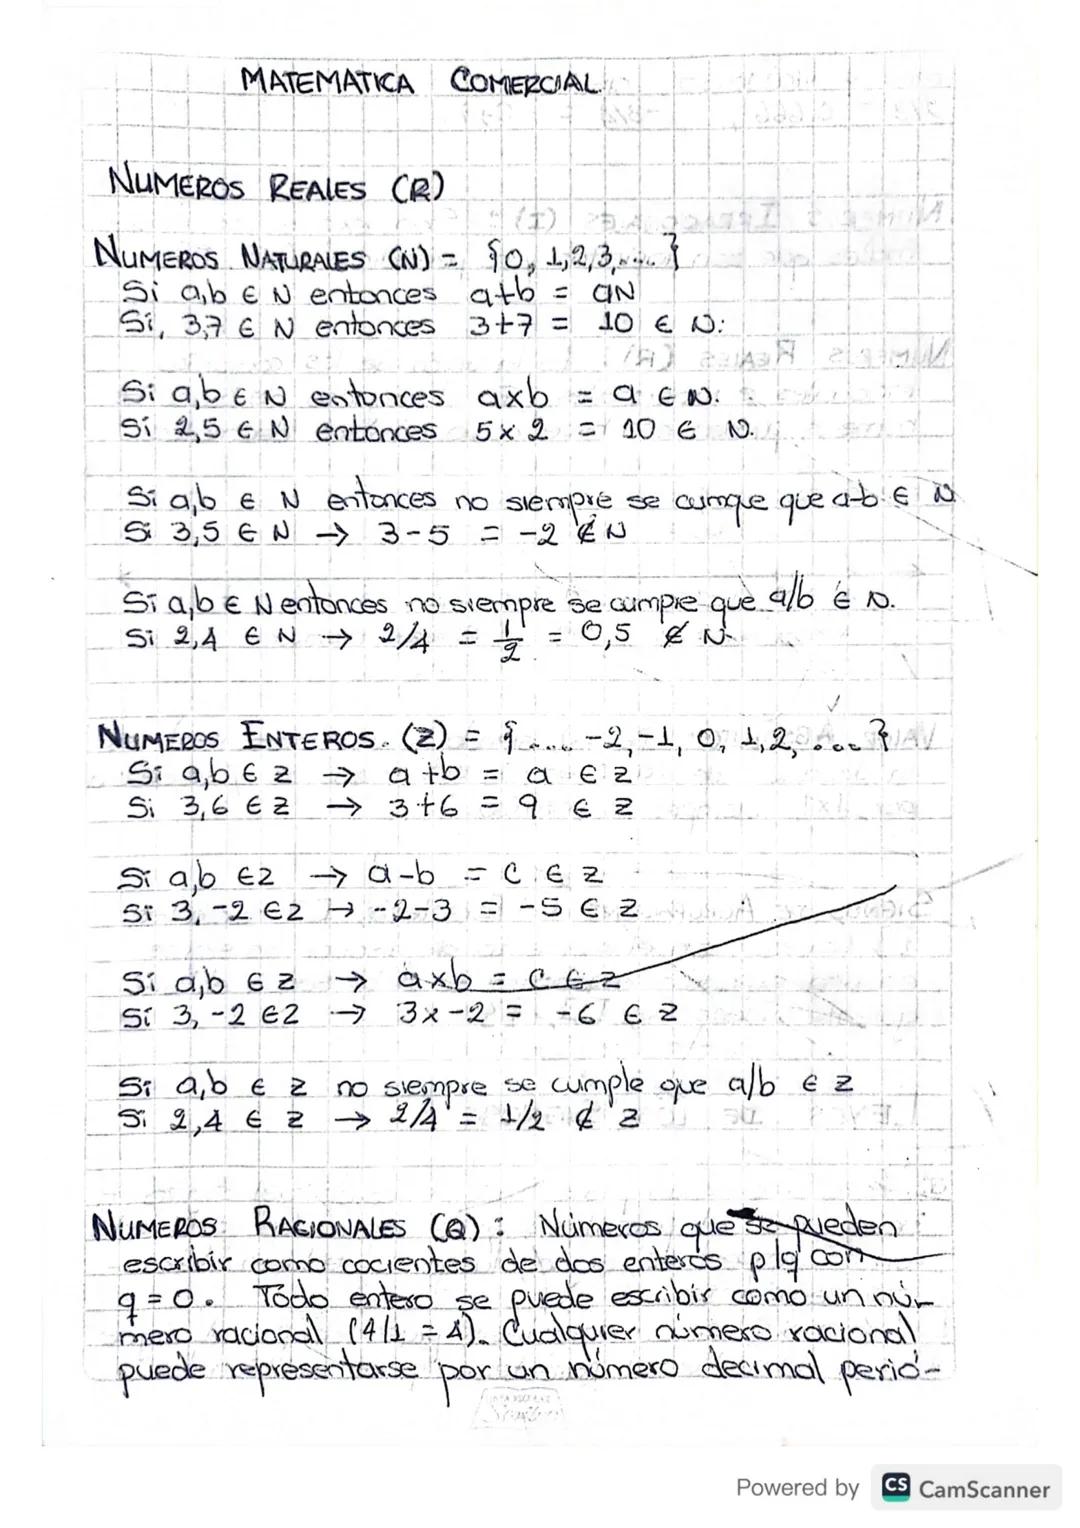 MATEMATICA COMERCIAL
NUMEROS REALES (R)
NUMEROS NATURALES (N) = {0, 1,2,3,....}
Si a,b ∈ N entonces a+b = aN
Si, 3,7 ∈ N entonces 3+7 = 10 ∈ N:
Si a,b ∈ N entonces axb = a ∈ N.
Si 2,5 ∈ N entonces 5x2 = 10 ∈ N.
Si a,b ∈ N entonces no siempre se cumple que a-b ∈ N
Si 3,5 ∈ N → 3-5 = -2 ∉ N
Si a,b ∈ N entonces no siempre se cumple que a/b ∈ N.
Si 2,4 ∈ N → 2/4 = 1/2 = 0,5 ∉ N
NUMEROS ENTEROS. (Z) = {.... -2,-1, 0, 1,2, ....}
Si a,b ∈ Z → a+b = a ∈ Z
Si 3,6 ∈ Z → 3+6 = 9 ∈ Z
Si a,b ∈ Z → a-b = C ∈ Z
Si 3,-2 ∈ Z → -2-3 = -5 ∈ Z
Si a,b ∈ Z → axb = C ∈ Z
Si 3,-2 ∈ Z → 3x-2 = -6 ∈ Z
Si a,b ∈ Z no siempre se cumple que a/b ∈ Z
Si 2,4 ∈ Z → 2/4 = 1/2 ∉ Z
NUMEROS RACIONALES (Q): Números que se pueden
escribir como cocientes de dos enteros p/q con
q=0. Todo entero se puede escribir como un nú-
mero racional (4/1 = 4). Cualquier número racional
puede representarse por un número decimal perió-
Powered by CS CamScanner